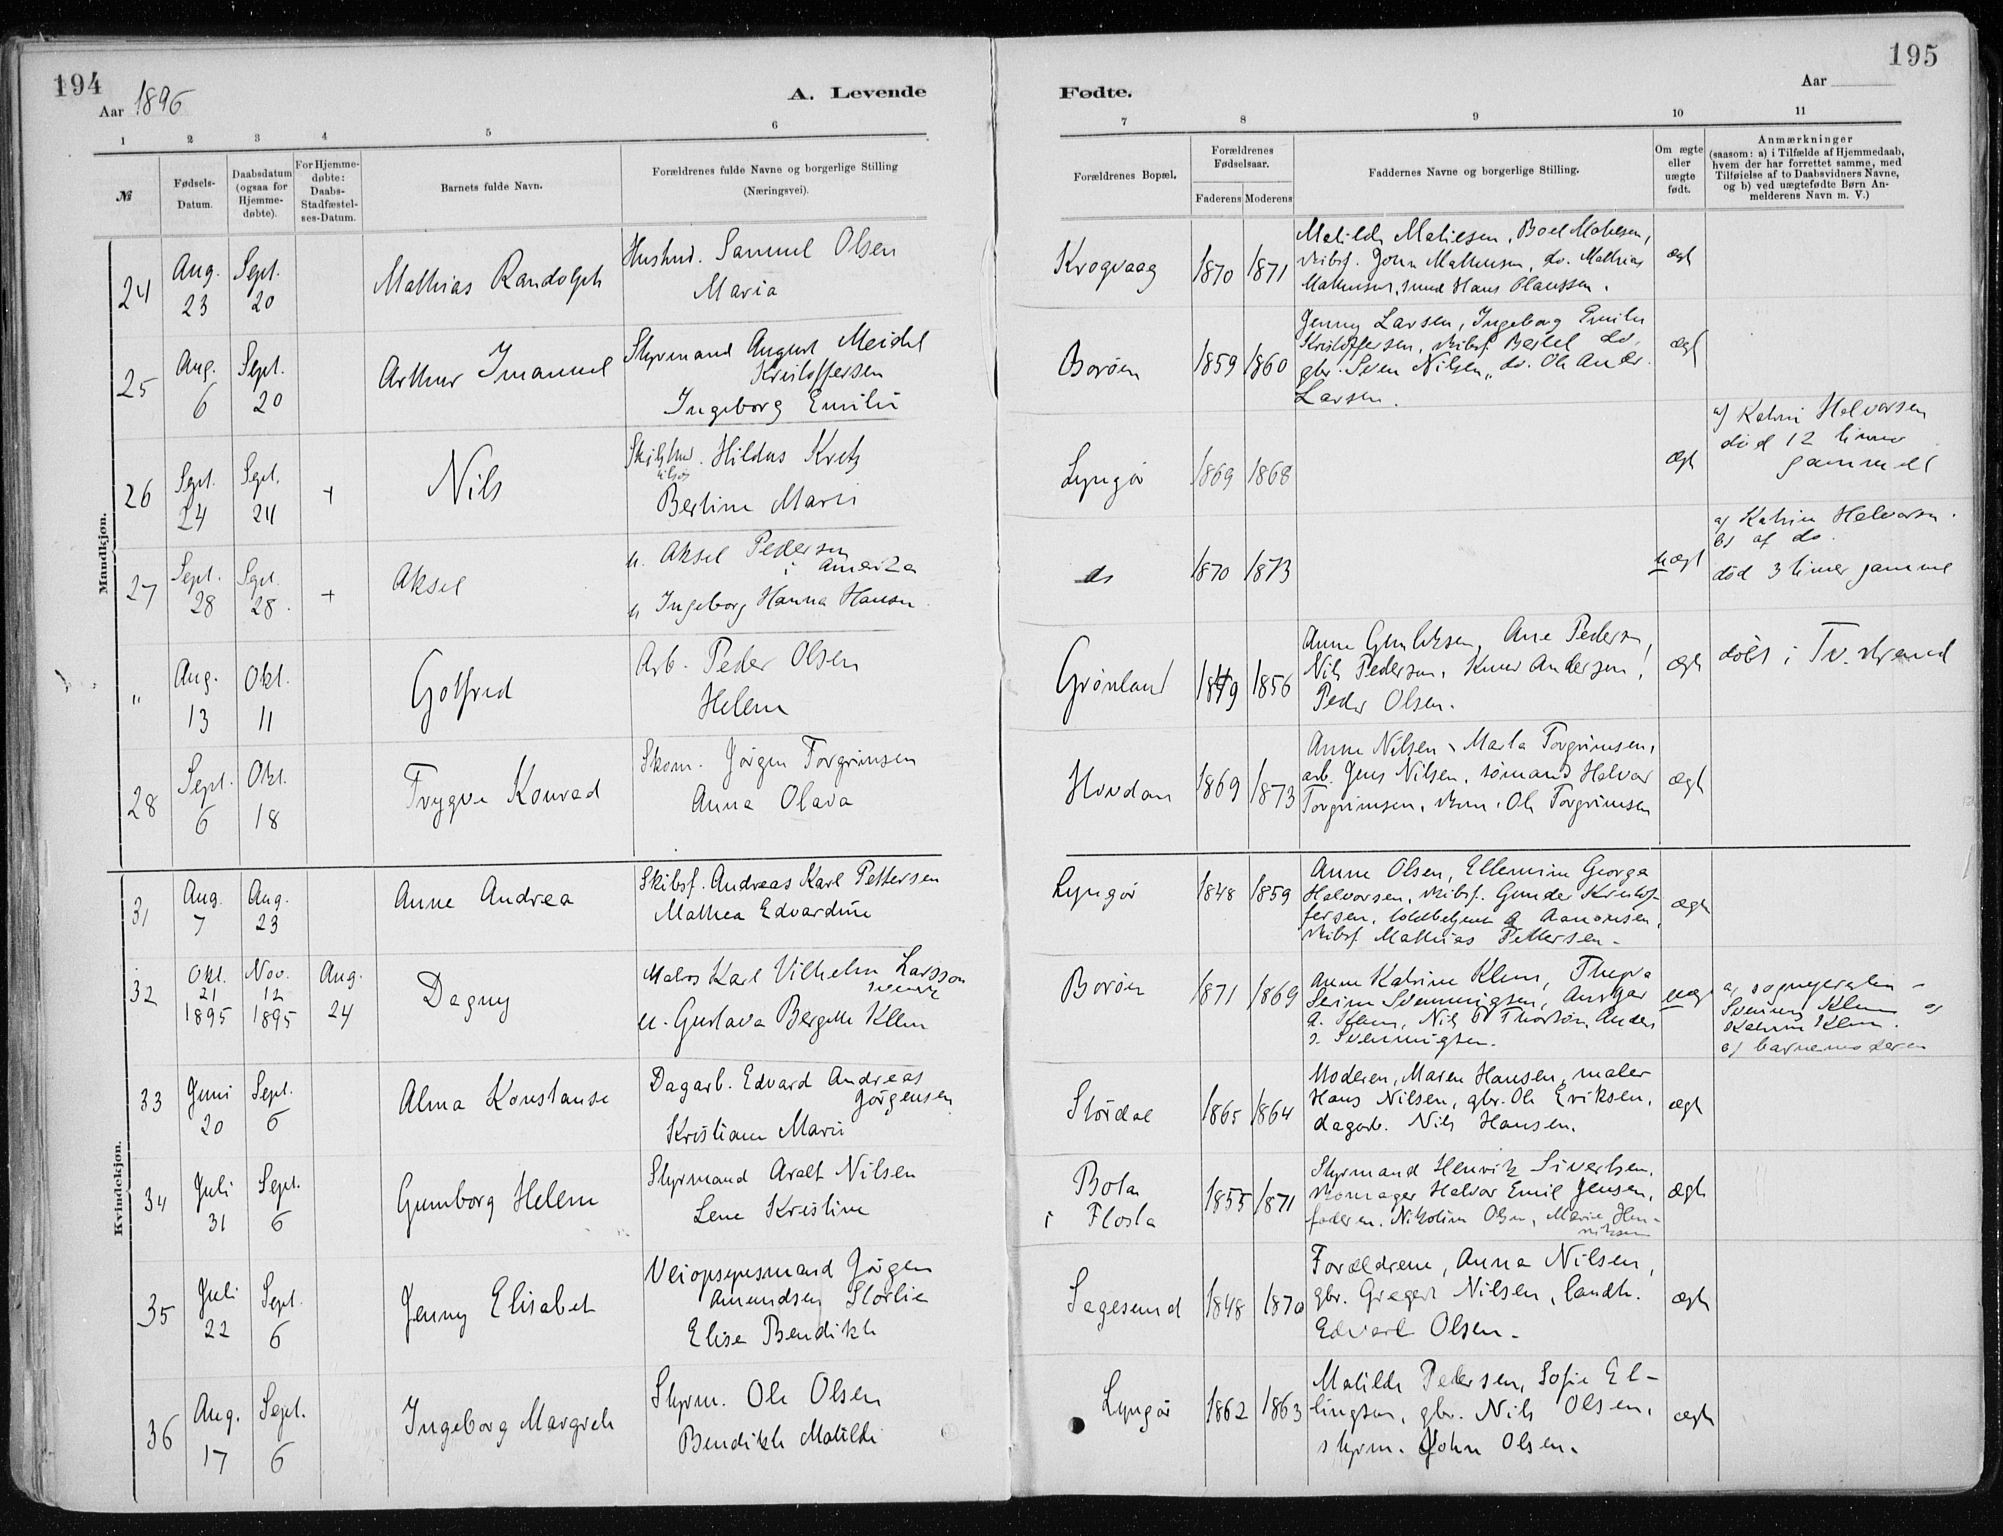 194
Aar 1896
A. Levende
1 2 3 4 5 6
№
Fødsels-
Datum.
Daabsdatum
(ogsaa for
Hjemme-
døbte).
For Hjemme-
døbte:
Daabs-
Stadfæstel-
ses-Datum.
Barnets fulde Navn.
Forældrenes fulde Navne og borgerlige Stilling
(Næringsvei).
Mandkjøn.
24 Aug. 23 Sept. 20 Mathias Randolph
Samuel Olsen
Maria
25 Aug. 6 Sept. 20 Arthur Imanuel
Styrmand August Meidel
Kristoffersen
Ingeborg Emilie
26 Sept. 24 Sept. 24 + Nils
Hildus Kretz
Bertine Marie
27 Sept. 28 Sept. 28. + Aksel
u. Aksel Pedersen
i Amerika
u. Ingeborg Hanna Hansen
" Aug. 13 Okt. 11 Gotfred
Arb. Peder Olsen
Helene
28 Sept. 6 Okt. 18 Trygve Konrad
Skom. Jørgen Torgrimsen
Anna Olava
Kvindekjøn.
31 Aug. 7 Aug. 23 Anne Andrea
Skibsf. Andreas Karl Pettersen
Mathea Edvardine
32 Okt. 21 1895 Nov. 12 1895 Aug. 24 Dagny
Matros Karl Vilhelm Larsson
svensk
u. Gustava Bergitte Klem
33 Juni 20 Sept. 6 Alma Konstanse
Dagarb. Edvard Andreas
Jørgensen
Kristiane Marie
34 Juli 31 Sept. 6 Gunborg Helene
Styrmand Aralt Nilsen
Lene Kristine
35 Juli 22 Sept. 6 Jenny Elisabet
Veiopsynsmand Jørgen
Amundsen Storlie
Elise Bendikte
36 Aug. 17 Sept. 6 Ingeborg Margrete
Styrm. Ole Olsen
Bendikte Matilde
195
Aar
Fødte.
7 8 9 10 11
Forældrenes Bopæl.
Forældrenes
Fødselsaar.
Faderens Moderens
Faddernes Navne og borgerlige Stilling.
Om ægte
eller
uægte
født.
Anmærkninger
(saasom: a) i Tilfælde af Hjemmedaab,
hvem der har forrettet samme, med
Tilføielse af to Daabsvidners Navne,
og b) ved uægtefødte Børn An-
melderens Navn m. V.)
Krogvaag 1870 1871
Matilde Matiesen, Boel Matiesen,
skibsf. John Mathisen, do. Mathias
Mathisen, smed Hans Olaussen.
ægt
Borøen 1859 1860
Jenny Larsen, Ingeborg Emilie
Kristoffersen, skibsf. Bertel do,
gbr. Sven Nilsen, do. Ole Ander.
Larsen.
ægt
Lyngør 1869 1868 ægt
a) Katrine Halvorsen
død 12 timer
gammel
do 1870 1873 uægt
a) Katrine Halvorsen.
b) af do.
død 3 timer gammel
Grønland 1849 1856
Anne Gundersen, Ane Pedersen,
Nils Pedersen, Knud Andersen,
Peder Olsen.
ægt
døbt i Tv.strand
Hovdan 1869 1873
Anne Nilsen, Marta Torgrimsen,
arb. Jens Nilsen, sømand Halvor
Torgrimsen, skom. Ole Torgrimsen
ægt
Lyngør 1848 1859
Anne Olsen, Ellemine Georga
Halvorsen, skibsf. Gunder Kristof-
fersen, toldbetjent A Aanonsen,
skibsf Mathias Pettersen.
ægt
Borøen 1871 1869
Anne Katrine Klem, Thepra
Serine Svenningsen, Ansgar
A. Klem, Nils Thorsøn, Anders
S. Svenningsen.
uægt
a) sogne
Svenning Klem og
Katrine Klem.
b) barnemoderen
Stordal 1865 1864
Moderen, Maren Hansen, maler
Hans Nilsen, gbr. Ole Eriksen,
dagarb. Nils Hansen.
ægt
Bota
i Flosta
1855 1871
Styrmand Henrik Sivertsen,
skomager Halvor Emil Jensen,
faderen, Nikoline Olsen, Marie Hen-
riksen
ægt
Sagesund 1848 1870
Forældrene, Anna Nilsen,
gbr. Gregert Nilsen, landh.
Edvart Olsen.
ægt
Lyngør 1862 1863
Matilde Pedersen, Sofie El-
lingsen, gbr. Nils Olsen,
styrm. John Olsen.
ægt